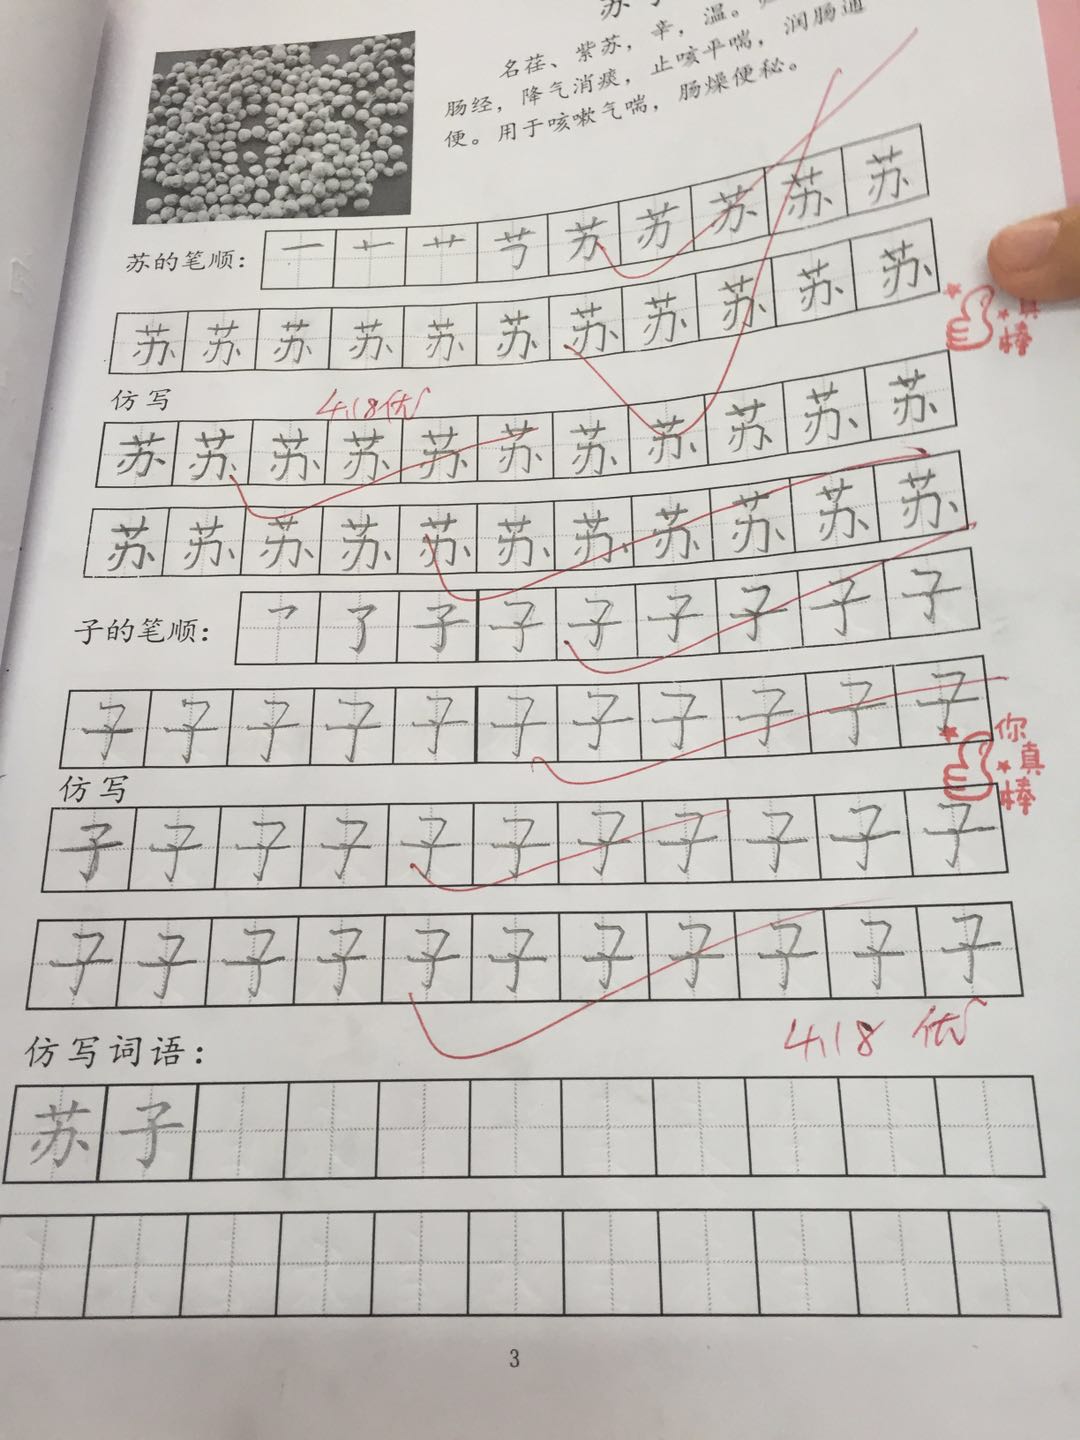 苏
名荏、紫苏，辛，温。
肠经，降气消痰，止咳平喘，润肠通
便。用于咳嗽气喘，肠燥便秘。
苏的笔顺： 苏 苏 苏 苏 苏
苏 苏 苏 苏 苏 苏 苏 苏 苏 苏 苏
真棒
仿写
4.18 优
苏 苏 苏 苏 苏 苏 苏 苏 苏 苏 苏
苏 苏 苏 苏 苏 苏 苏 苏 苏 苏 苏
子的笔顺： 乛 了 子 子 子 子 子 子 子
子 子 子 子 子 子 子 子 子 子 子
你真棒
仿写
子 子 子 子 子 子 子 子 子 子 子
子 子 子 子 子 子 子 子 子 子 子
4.18 优
仿写词语：
苏 子
3